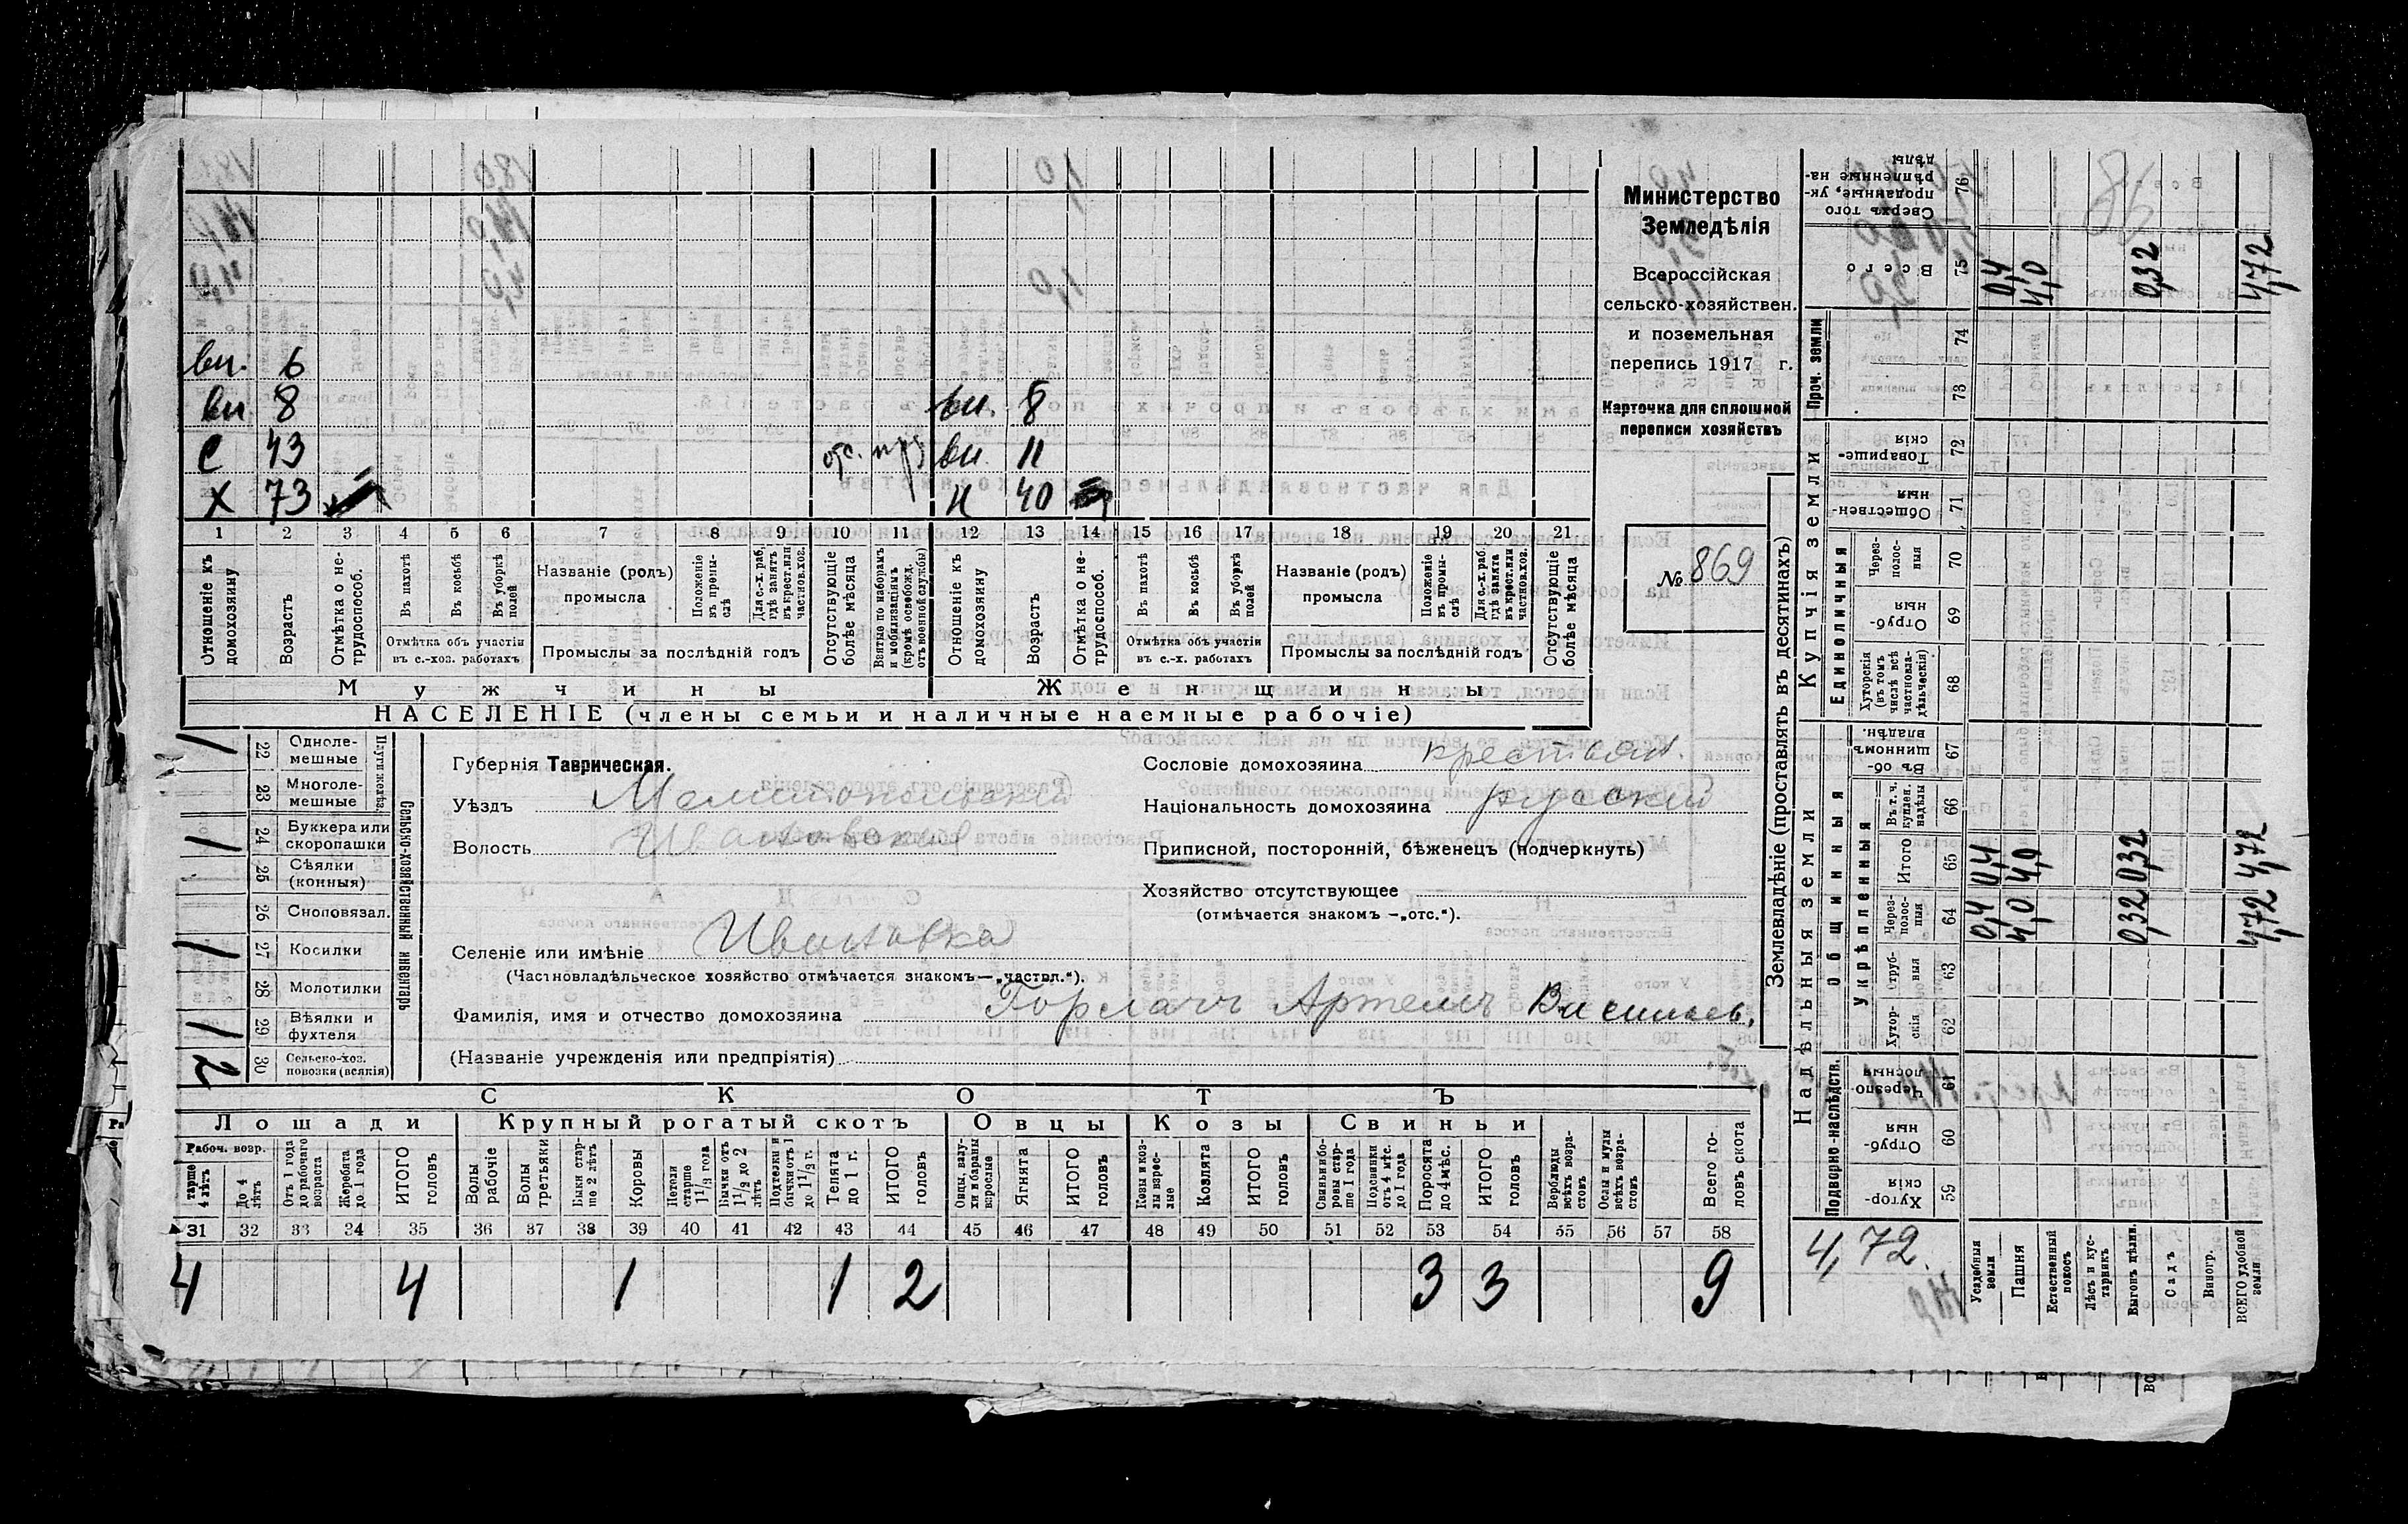 вн. 6
вн. 8 вн. 8
С 43 отс. вн. 11
Х 73 Н 40
1 2 3 4 5 6 7 8 9 10 11 12 13 14 15 16 17 18 19 20 21
Отношеніе къ домохозяину
Возрастъ
Отмѣтка о не-трудоспособ.
Въ пахотѣ
Въ косьбѣ
Въ уборкѣ полей
Отмѣтка объ участіи въ с.-хоз. работахъ
Названіе (родъ) промысла
Положеніе въ промы-слѣ
Для с.-х. раб. гдѣ занятъ въ крест. или частнов. хоз.
Промыслы за послѣдній годъ
Отсутствующіе болѣе мѣсяца
Взятые по наборамъ и мобилизаціямъ (кромѣ освобожд. отъ военной службы)
Отношеніе къ домохозяину
Возрастъ
Отмѣтка о не-трудоспособ.
Въ пахотѣ
Въ косьбѣ
Въ уборкѣ полей
Отмѣтка объ участіи въ с.-х. работахъ
Названіе (родъ) промысла
Положеніе въ промы-слѣ
Для с.-х. раб. гдѣ занята въ крест. или частнов. хоз.
Промыслы за послѣдній годъ
Отсутствующіе болѣе мѣсяца
Мужчины Женщины
НАСЕЛЕНІЕ (члены семьи и наличные наемные рабочіе)
Министерство
Земледѣлія
Всероссійская
сельско-хозяйствен.
и поземельная
перепись 1917 г.
Карточка для сплошной
переписи хозяйствъ
№ 869
Сельско-хозяйственный инвентарь
22 Одноле-мешные 1
23 Многоле-мешные
24 Буккера или скоропашки 1
25 Сѣялки (конныя)
26 Сноповязал.
27 Косилки 1
28 Молотилки
29 Вѣялки и фухтеля 1
30 Сельско-хоз. повозки (всякія) 2
Губернія Таврическая.
Уѣздъ Мелитопольскій
Волость Ивановская
Сословіе домохозяина крестьян.
Національность домохозяина русский
Приписной, посторонній, бѣженецъ (подчеркнуть)
Хозяйство отсутствующее
(отмѣчается знакомъ —„отс.“).
Селеніе или имѣніе Ивановка
(Частновладѣльческое хозяйство отмѣчается знакомъ—„частвл.“).
Фамилія, имя и отчество домохозяина Горлачъ Артемъ Васильев.
(Названіе учрежденія или предпріятія)
СКОТЪ
Лошади Крупный рогатый скотъ Овцы Козы Свиньи
Рабоч. возр.
Старше 4 лѣтъ
До 4 лѣтъ
Отъ 1 года до рабочаго возраста
Жеребята до 1 года
ИТОГО головъ
Волы рабочіе
Волы третьяки
Быки стар-ше 2 лѣтъ
Коровы
Нетели старше 1 1/2 года
Бычки отъ 1 1/2 до 2 лѣтъ
Подтелки и бычки отъ 1 до 1 1/2 г.
Телята до 1 г.
ИТОГО головъ
Овцы, валу-хи и бараны взрослые
Ягнята
ИТОГО головъ
Козы и коз-лы взрос-лые
Козлята
ИТОГО головъ
Свиньи и бо-ровы стар-ше 1 года
Подсвинки отъ 4 мѣс. до 1 года
Поросята до 4 мѣс.
ИТОГО головъ
Верблюды всѣхъ возра-стовъ
Ослы и мулы всѣхъ возра-стовъ
Всего го-ловъ скота
31 32 33 34 35 36 37 38 39 40 41 42 43 44 45 46 47 48 49 50 51 52 53 54 55 56 57 58
4 4 1 1 2 3 3 9
Землевладѣніе (проставлять въ десятинахъ)
Надѣльныя земли Купчія земли Проч. земли
Подворно-наслѣдств.
Общинныя
Укрѣпленныя
Единоличныя
Хутор-скія 59
Отруб-ныя 60
Черезпо-лосныя 61
Хутор-скія 62
Отруб-ныя 63
Через-полос-ныя 64
Итого 65
Въ т. ч. куплен. надѣлы 66
Въ об-щинномъ владѣн. 67
Хуторскія (въ томъ числѣ всѣ частновла-дѣльческія) 68
Отруб-ныя 69
Через-полос-ныя 70
Обществен-ныя 71
Товарище-скія 72
73
74
Всего 75
Сверхъ того проданные, ук-рѣпленные на-дѣлы 76
4,72.
Усадебныя земли 0,4 0,4 0,4
Пашня 4,0 4,0 4,0
Естественный покосъ
Лѣсъ и кус-тарникъ
Выгонъ дѣлин. 0,32 0,32 0,32
Садъ
Виногр.
ВСЕГО удобной земли 4,72 4,72 4,72